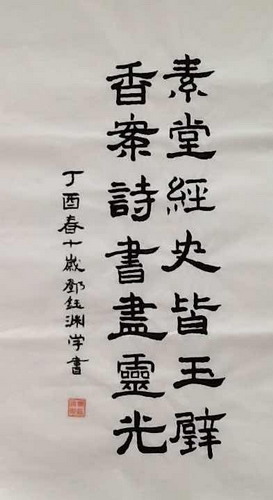 素堂經史皆玉壁
香案詩書盡靈光
丁酉春十歲鄧鈺渊学書